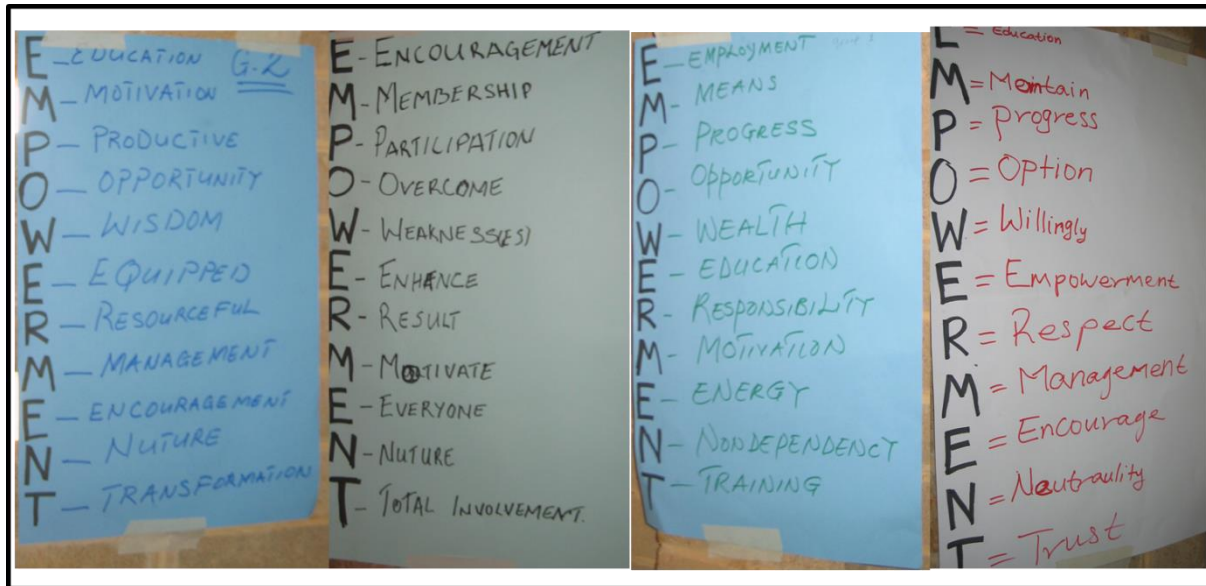 E - EDUCATION G.2
M - MOTIVATION
P - PRODUCTIVE
O - OPPORTUNITY
W - WISDOM
E - EQUIPPED
R - RESOURCEFUL
M - MANAGEMENT
E - ENCOURAGEMENT
N - NUTURE
T - TRANSFORMATION
E - ENCOURAGEMENT
M - MEMBERSHIP
P - PARTICIPATION
O - OVERCOME
W - WEAKNESS(ES)
E - ENHANCE
R - RESULT
M - MOTIVATE
E - EVERYONE
N - NUTURE
T - TOTAL INVOLVEMENT.
E - EMPLOYMENT
M - MEANS
P - PROGRESS
O - OPPORTUNITY
W - WEALTH
E - EDUCATION
R - RESPONSIBILITY
M - MOTIVATION
E - ENERGY
N - NONDEPENDENCY
T - TRAINING
E = Education
M = Maintain
P = Progress
O = Option
W = Willingly
E = Empowerment
R = Respect
M = Management
E = Encourage
N = Neutraulity
T = Trust